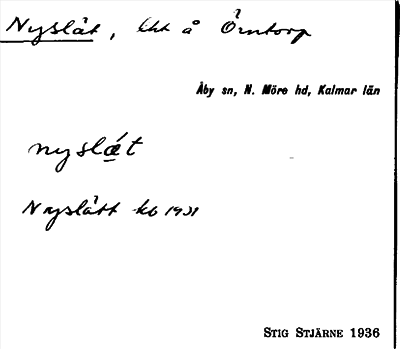 Nyslät, lht å Örntorp
Åby sn, N. Möre hd, Kalmar län
nyslǽ̲t
Nyslätt kb 1931
STIG STJÄRNE 1936